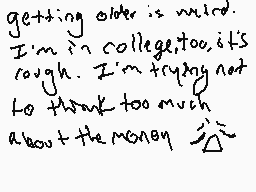 getting older is weird.
I'm in college, too, it's
rough. I'm trying not
to think too much
about the money